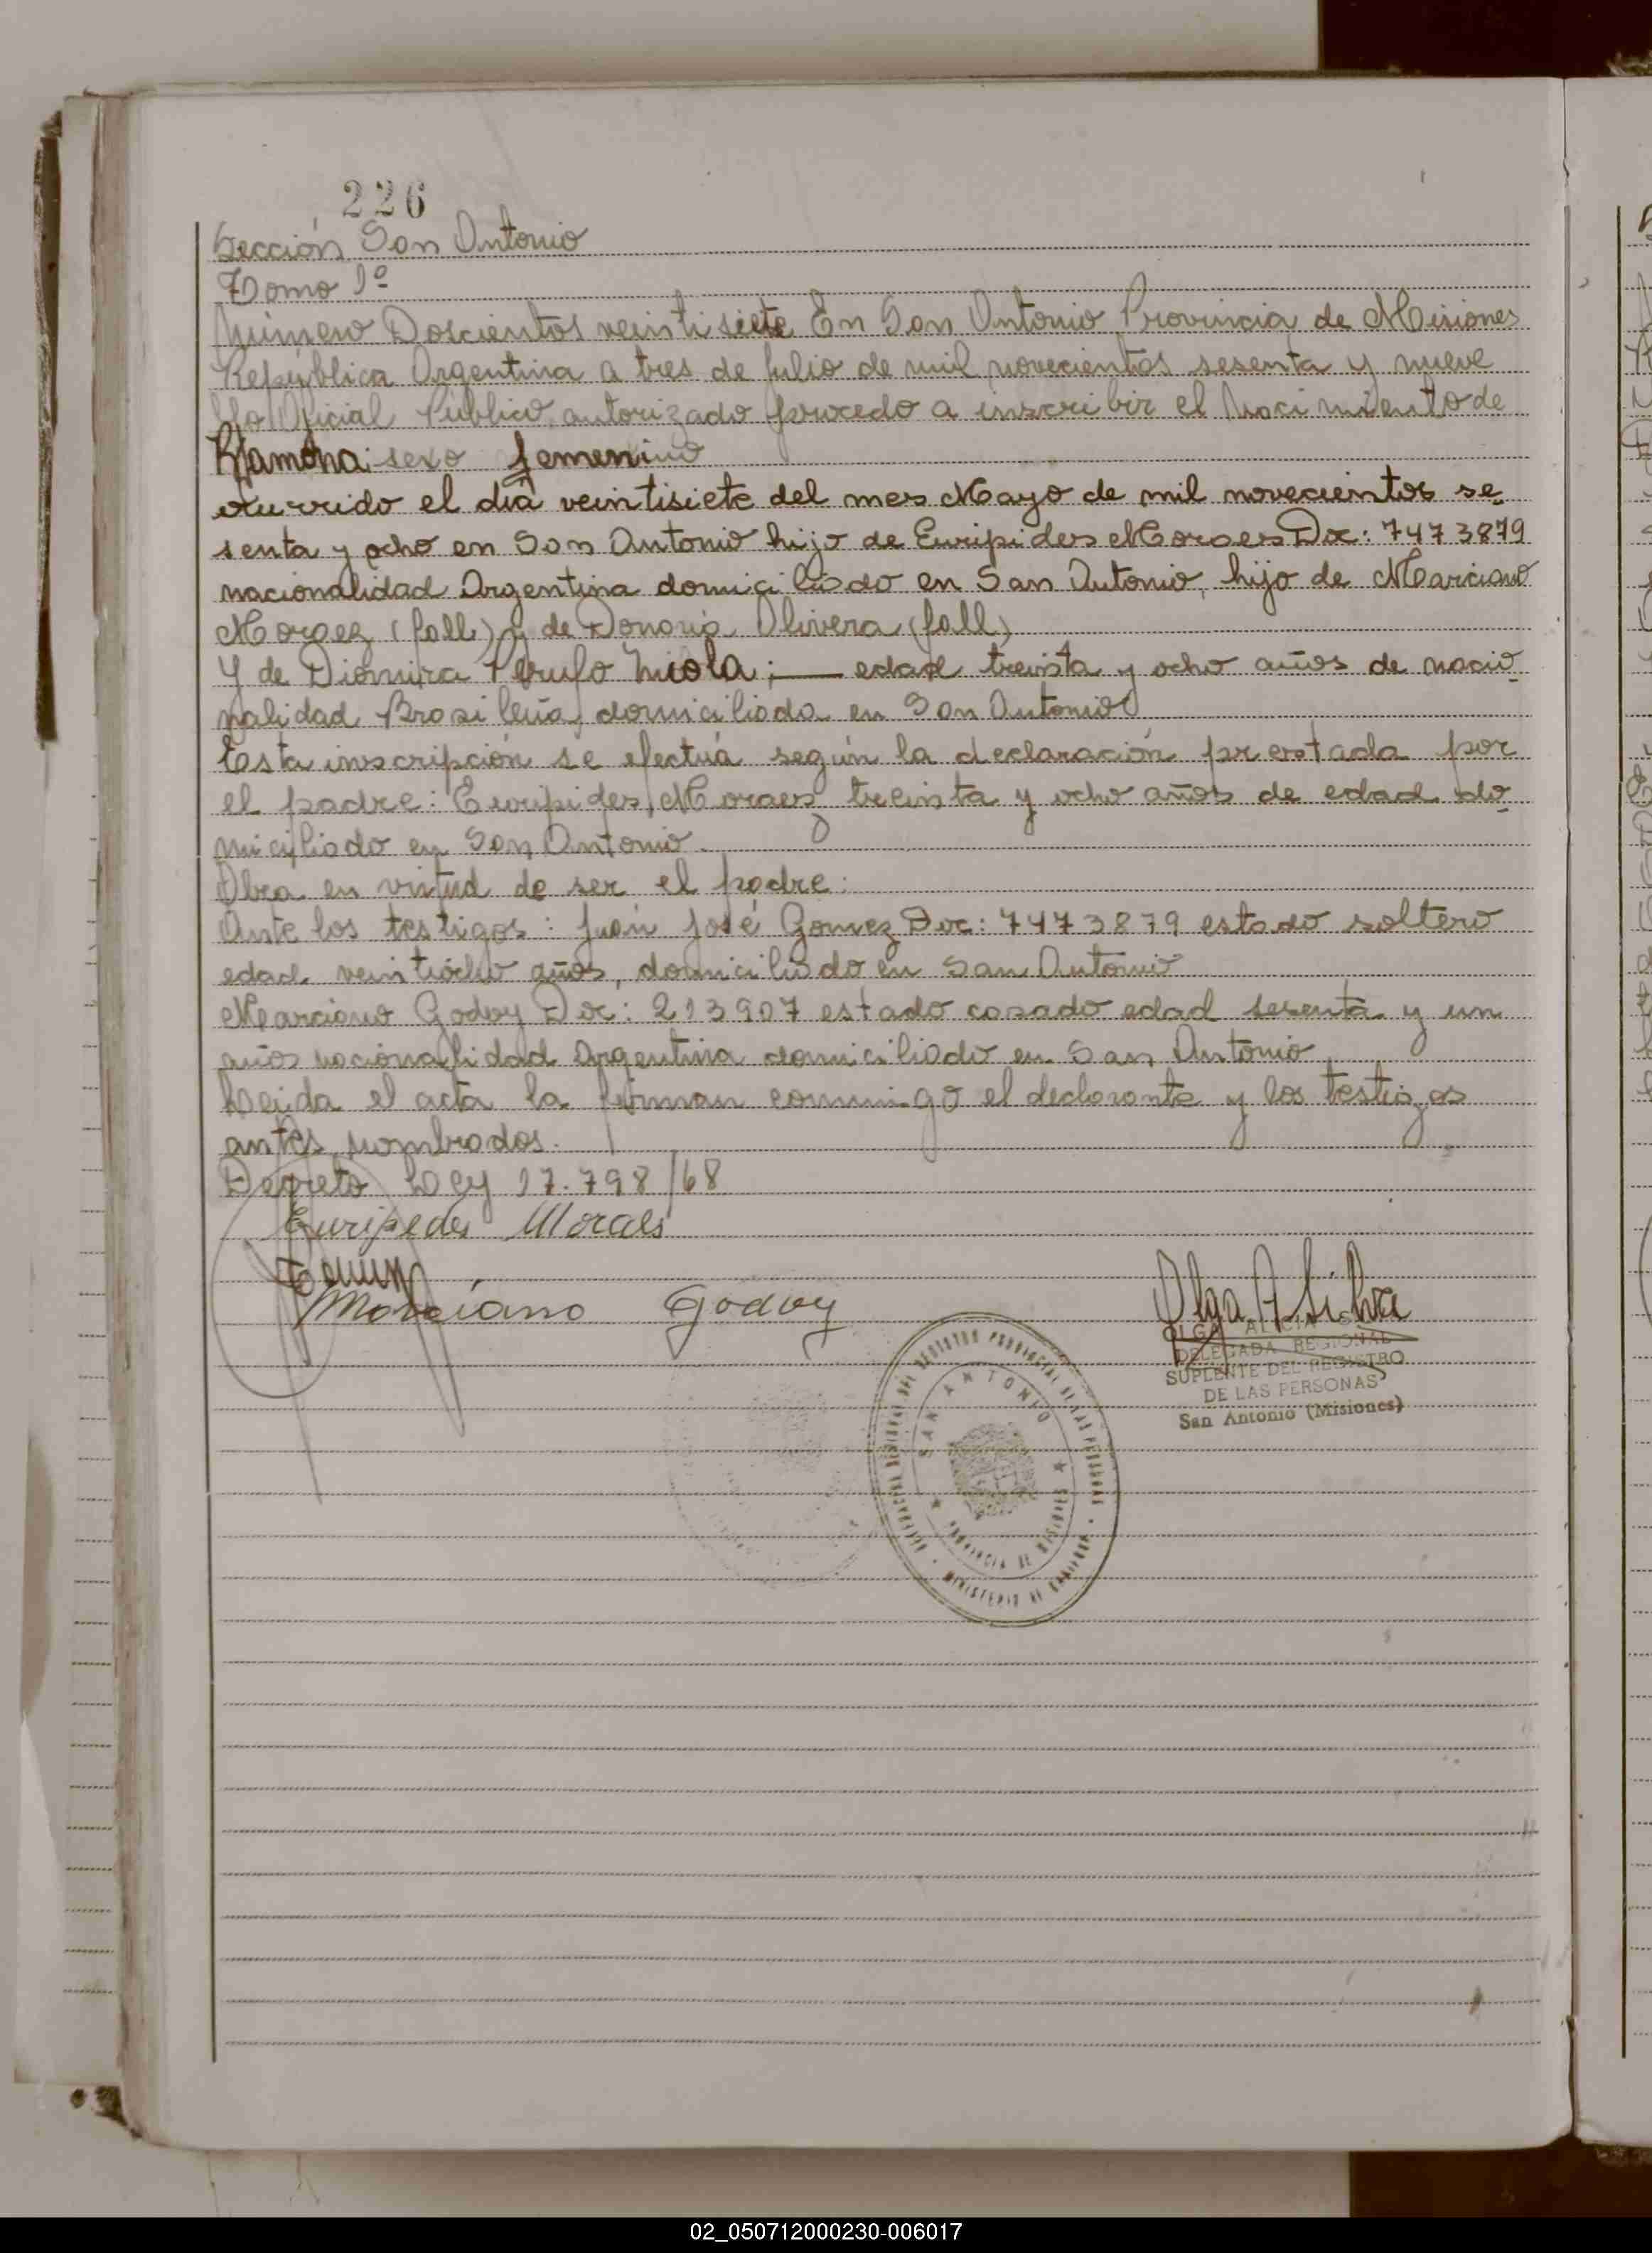 226
Sección San Antonio
Tomo 1º
Número Doscientos veintisiete En San Antonio Provincia de Misiones
República Argentina a tres de julio de mil novecientos sesenta y nueve
Yo Oficial Público autorizado procedo a inscribir el Nacimiento de
Ramona sexo femenino
ocurrido el día veintisiete del mes Mayo de mil novecientos se-
senta y ocho en San Antonio hijo de Euripides Moraes Doc: 7473879
nacionalidad Argentina domiciliado en San Antonio, hijo de Marciano
Moraez (fall) y de Donaria Olivera (fall)
Y de Diomira Perufo Nicola; — edad treinta y ocho años de nacio-
nalidad Brasileña, domiciliada en San Antonio
Esta inscripción se efectuá según la declaración prestada por
el padre: Euripides Moraez treinta y ocho años de edad do-
miciliado en San Antonio.
Obra en virtud de ser el padre.
Ante los testigos: Juan José Gomez Doc: 7473879 estado soltero
edad veintiocho años, domiciliado en San Antonio
Marciano Godoy Doc: 213907 estado casado edad sesenta y un
años nacionalidad argentina domiciliado en San Antonio
Leida el acta la firman conmigo el declarante y los testigos
antes nombrados.
Decreto Ley 17.798/68
Euripedes Moraes
Marciano Godoy
Olga A Silva
OLGA ALICIA
DELEGADA REGIONAL
SUPLENTE DEL REGISTRO
DE LAS PERSONAS
San Antonio (Misiones)
SAN ANTONIO
PROVINCIA DE MISIONES
MINISTERIO DE GOBIERNO
02_050712000230-006017